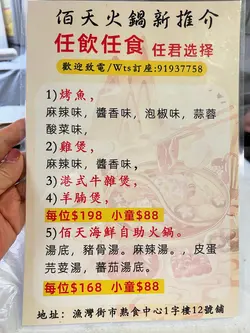 佰天火鍋新推介
任飲任食 任君选择
歡迎致電/Wts訂座:91937758
1)烤魚，
麻辣味，醬香味，泡椒味，蒜蓉
酸菜味，
2)雞煲，
麻辣味，醬香味，
3)港式牛雜煲，
4)羊腩煲，
每位$198 小童$88
5)佰天海鮮自助火鍋。
湯底，豬骨湯。麻辣湯。，皮蛋
芫荽湯，蕃茄湯底。
每位$168 小童$88
地址：漁灣街市熟食中心1字樓12號舖